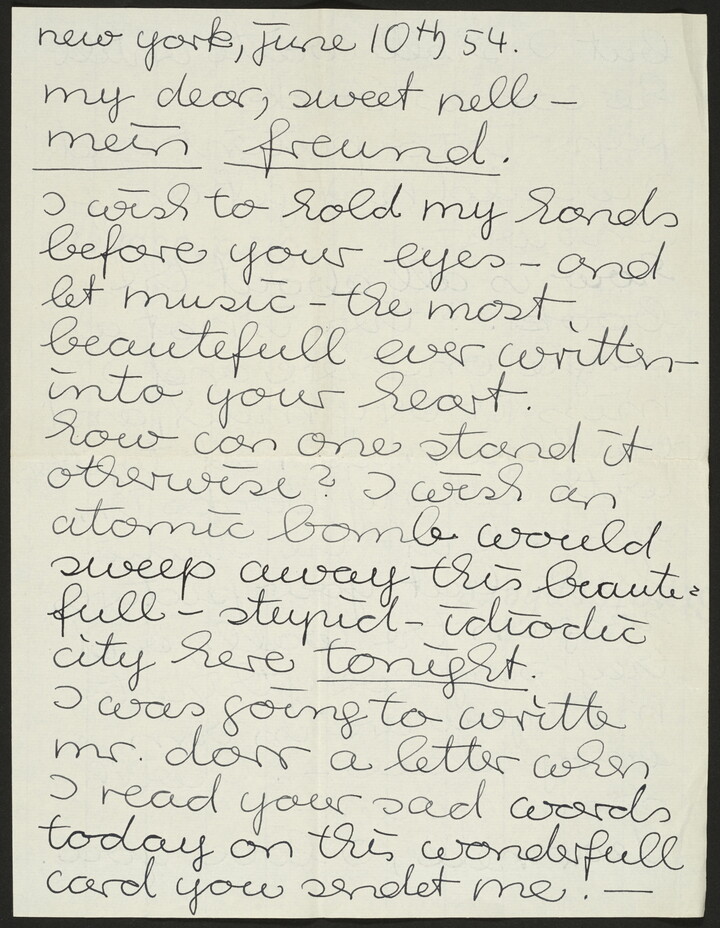 new york, june 10th 54.
my dear, sweet nell –
mein freund.
I wish to hold my hands
before your eyes – and
let music – the most
beautefull ever written –
into your heart.
how can one stand it
otherwise? I wish an
atomic bomb would
sweep away this beaute=
full – stupid – idiodic
city here tonight.
I was going to writte
mr. dorr a letter when
I read your sad words
today on this wonderfull
card you sendet me. —